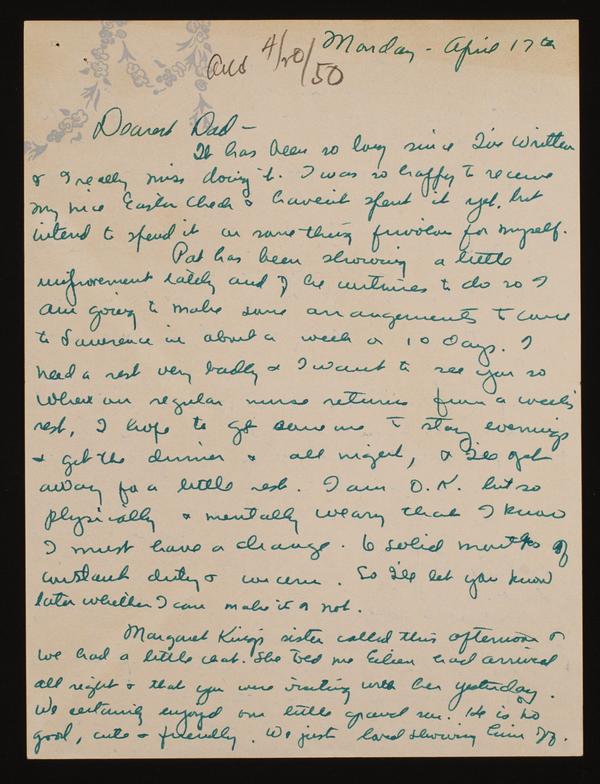 Monday - April 17th
Ans 4/20/50
Dearest Dad -
It has been so long since I've written
& I really miss doing it. I was so happy to receive
my nice Easter check & haven't spent it yet, but
intend to spend it on something frivolous for myself.
Pat has been showing a little
improvement lately and if he continues to do so I
am going to make some arrangements to come
to Lawrence in about a week or 10 days. I
need a rest very badly & I want to see you so
when our regular nurse returns from a week's
rest, I hope to get someone to stay evenings
& get the dinner & all night, & I'll get
away for a little rest. I am O.K. but so
physically & mentally weary that I know
I must have a change. 6 solid months of
constant duty & concern. So I'll let you know
later whether I can make it or not.
Margaret King's sister called this afternoon &
we had a little chat. She told me Eileen had arrived
all right & that you were visiting with her yesterday.
We certainly enjoyed our little grandson. He is so
good, cute & friendly. We just loved showing him off.